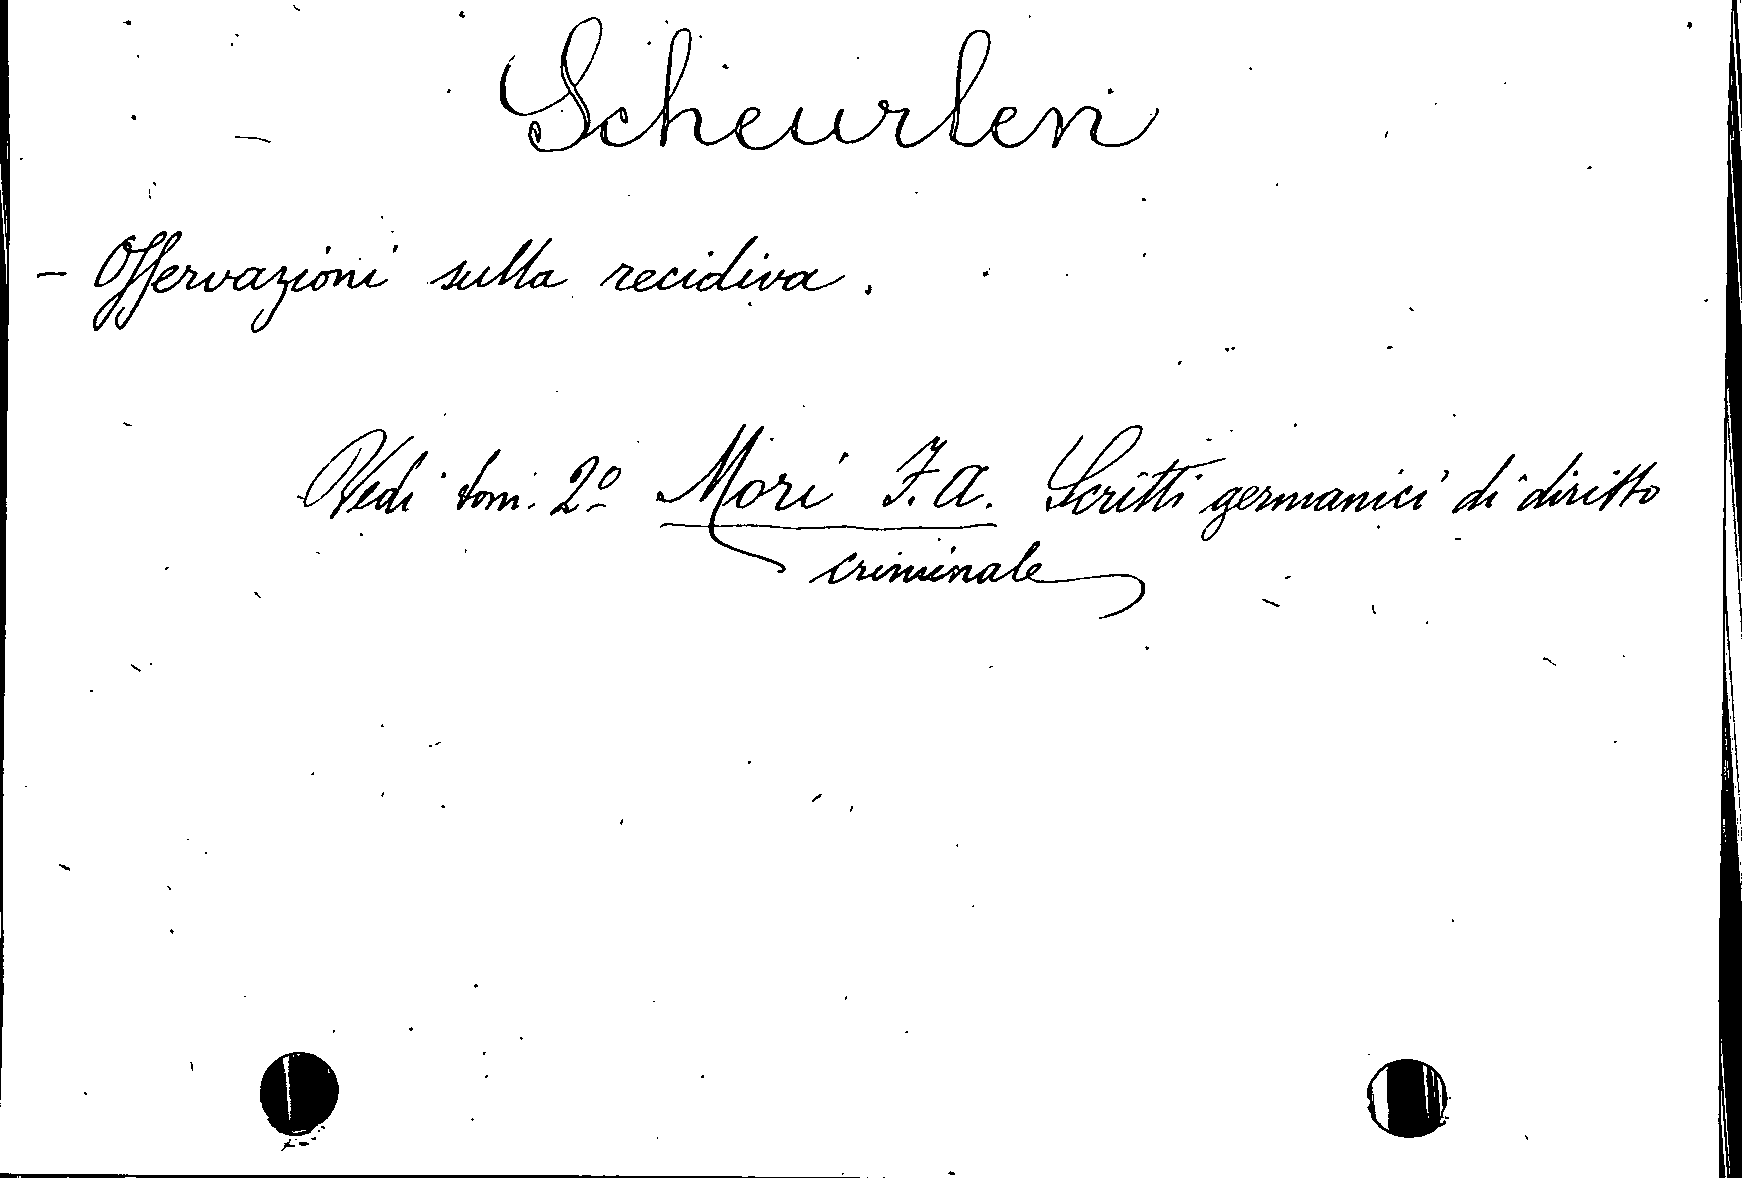 Scheurlen
- Osservazioni sulla recidiva.
Vedi tom. 2º Mori F. A. Scritti germanici di diritto
criminale